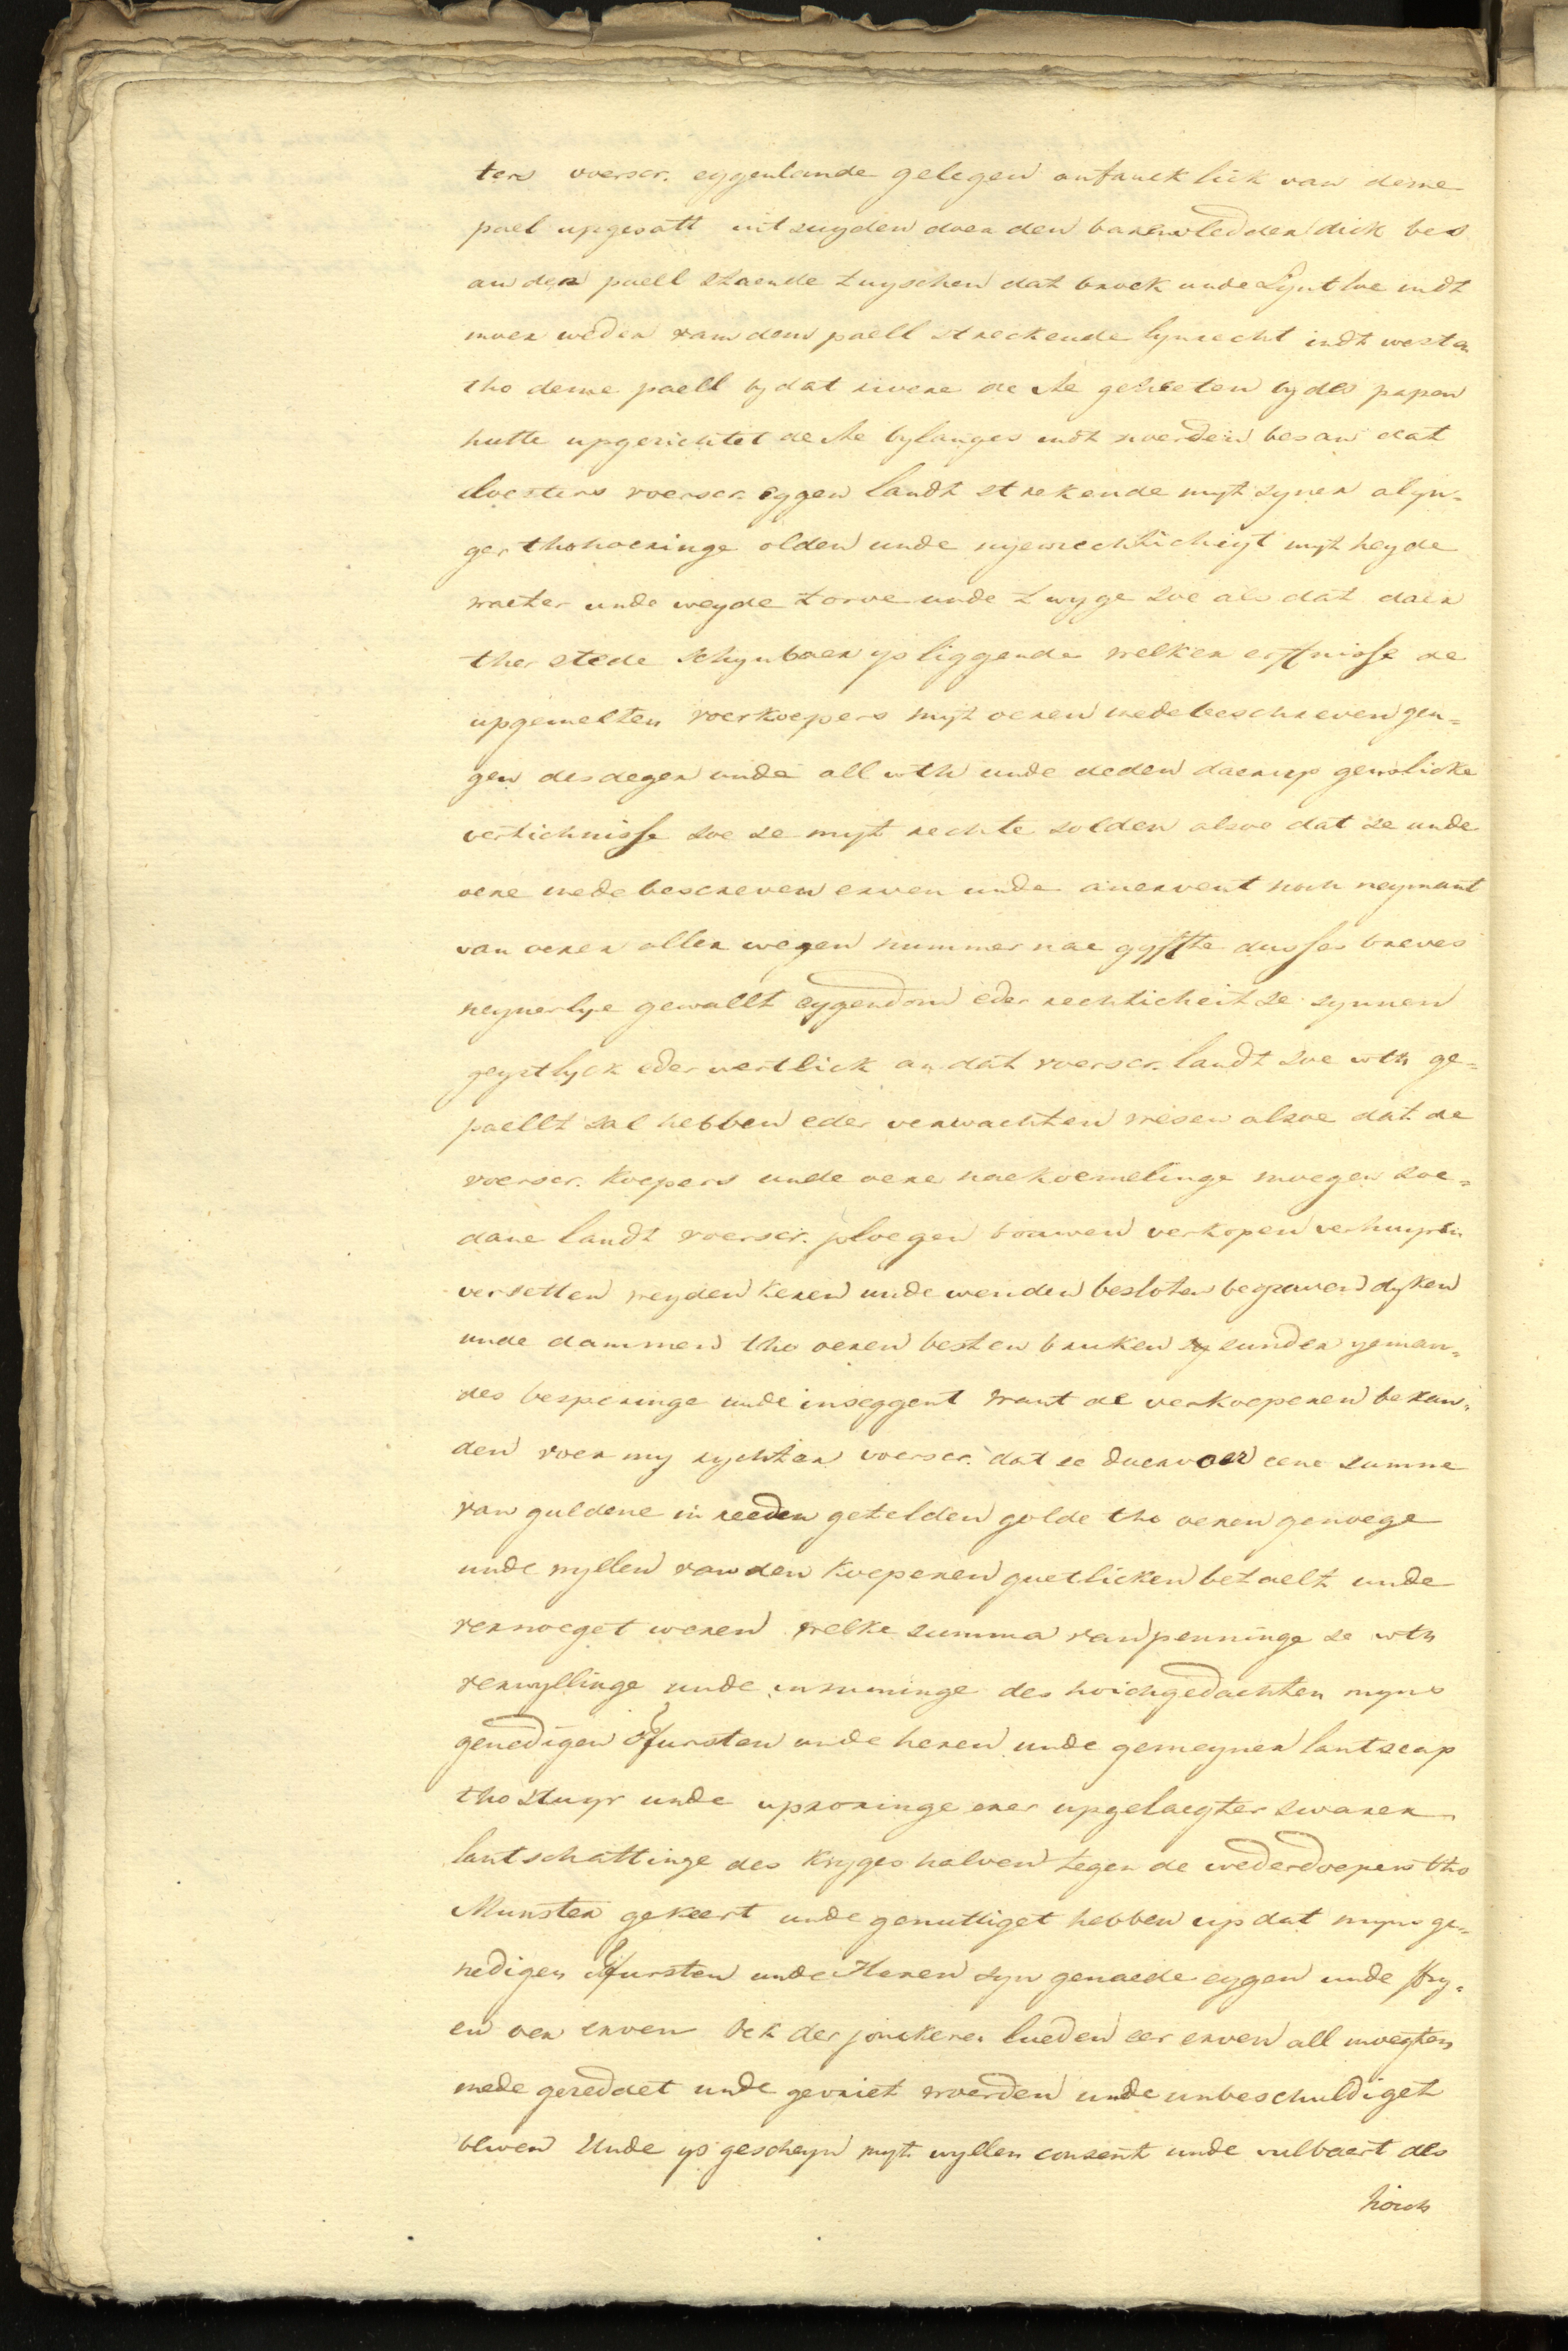 ters voerscr. eygenlande gelegen anfanck lick van deme
pael upgesatt int zuyden doer den barenvledder dick bes
an den paell staende tuyschen dat broek unde Lyntloe indt
moer weder vam dem paell streckende lynrecht indt westen
tho deme paell by dat rivere de Ae geheeten by des papen
hutte upgerichtet de Ae bylanges indt noerden bes an dat
cloesters voerscr. eygen landt strekende myt syner alyn-
ger thohoeringe olden unde nyewechticheyt myt heyde
waeter unde weyde torve unde twyge soe als dat daer
ther stede schynbaer ys liggende welker erffnisse de
upgemelten voerkoepers myt oeren medebeschreven gen-
gen des deger unde all wth unde deden daerup genslicke
vertichnisse soe se myt rechte solden alsoe dat se unde
oere medebescreven erven unde anervent noch neymant
van oerer aller wegen nummer nae gyffte dusses breves
neynerlye gewallt eygendom eder rechticheit se synnen
geystlyck eder wertlick an dat voerscr. landt soe wth ge-
paellt sal hebben eder verwachten wesen alsoe dat de
voerscr. koepers unde oere naekoemelinge moegen soe-
dane landt voerscr. ploegen bouwen verkopen verhuyren
versetten weyden keren unde wenden besloten begraven dyken
unde dammen tho oeren besten bruken sunder yeman-
des besperinge unde inseggent want de verkoeperen bekan-
den voer my rychter voerscr. dat se daervoer eene summe
van guldene in reeden getelden golde tho oeren genoege
unde wyllen van den koeperen guetlicken betaelt unde
vernoeget weren welke summa van penninge se wth
verwyllinge unde inruminge des hoichgedachten myns
genedigen ffursten unde heren unde gemeyner lantscap
tho stuyr unde uproringe erer upgelaegter swaren
lantschattinge des kryges halven tegen de wederdoepers tho
Munster gekeert unde genuttiget hebben up dat myns ge-
nedigen ffursten unde Heren syn genaede eygen unde fry-
en oer erven oek der jonckeren lueden eer erven all moegten
mede gereddet unde gevriet woerden unde unbeschuldiget
bliven Unde ys gescheyn myt wyllen consent unde vulbaert des
hoich